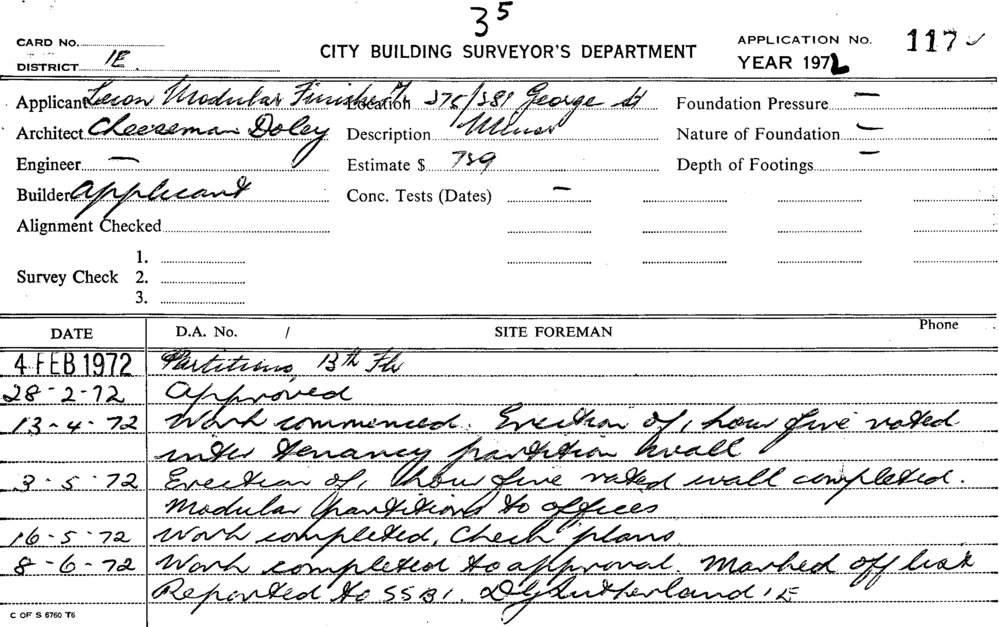 35
CARD No.
DISTRICT 1E
CITY BUILDING SURVEYOR'S DEPARTMENT
APPLICATION No. 117
YEAR 1972
Applicant Leson Modular Finishes Location 375/381 George St Foundation Pressure —
Architect Cheeseman Doley Description Minor Nature of Foundation —
Engineer — Estimate $ 789 Depth of Footings —
Builder Applicant Conc. Tests (Dates) —
Alignment Checked
Survey Check 1.
2.
3.
DATE D.A. No. / SITE FOREMAN Phone
4 FEB 1972 Partitions, 13th Flr
28-2-72 Approved
13-4-72 Work commenced. Erection of 1 hour fire rated
inter tenancy partition wall
3-5-72 Erection of 1 hour fire rated wall completed.
Modular partitions to offices
16-5-72 Work completed, Check plans
8-6-72 Work completed to approval. Marked off list
Reported to SSBI. DJ Sutherland 1E
C OF S 6760 T6